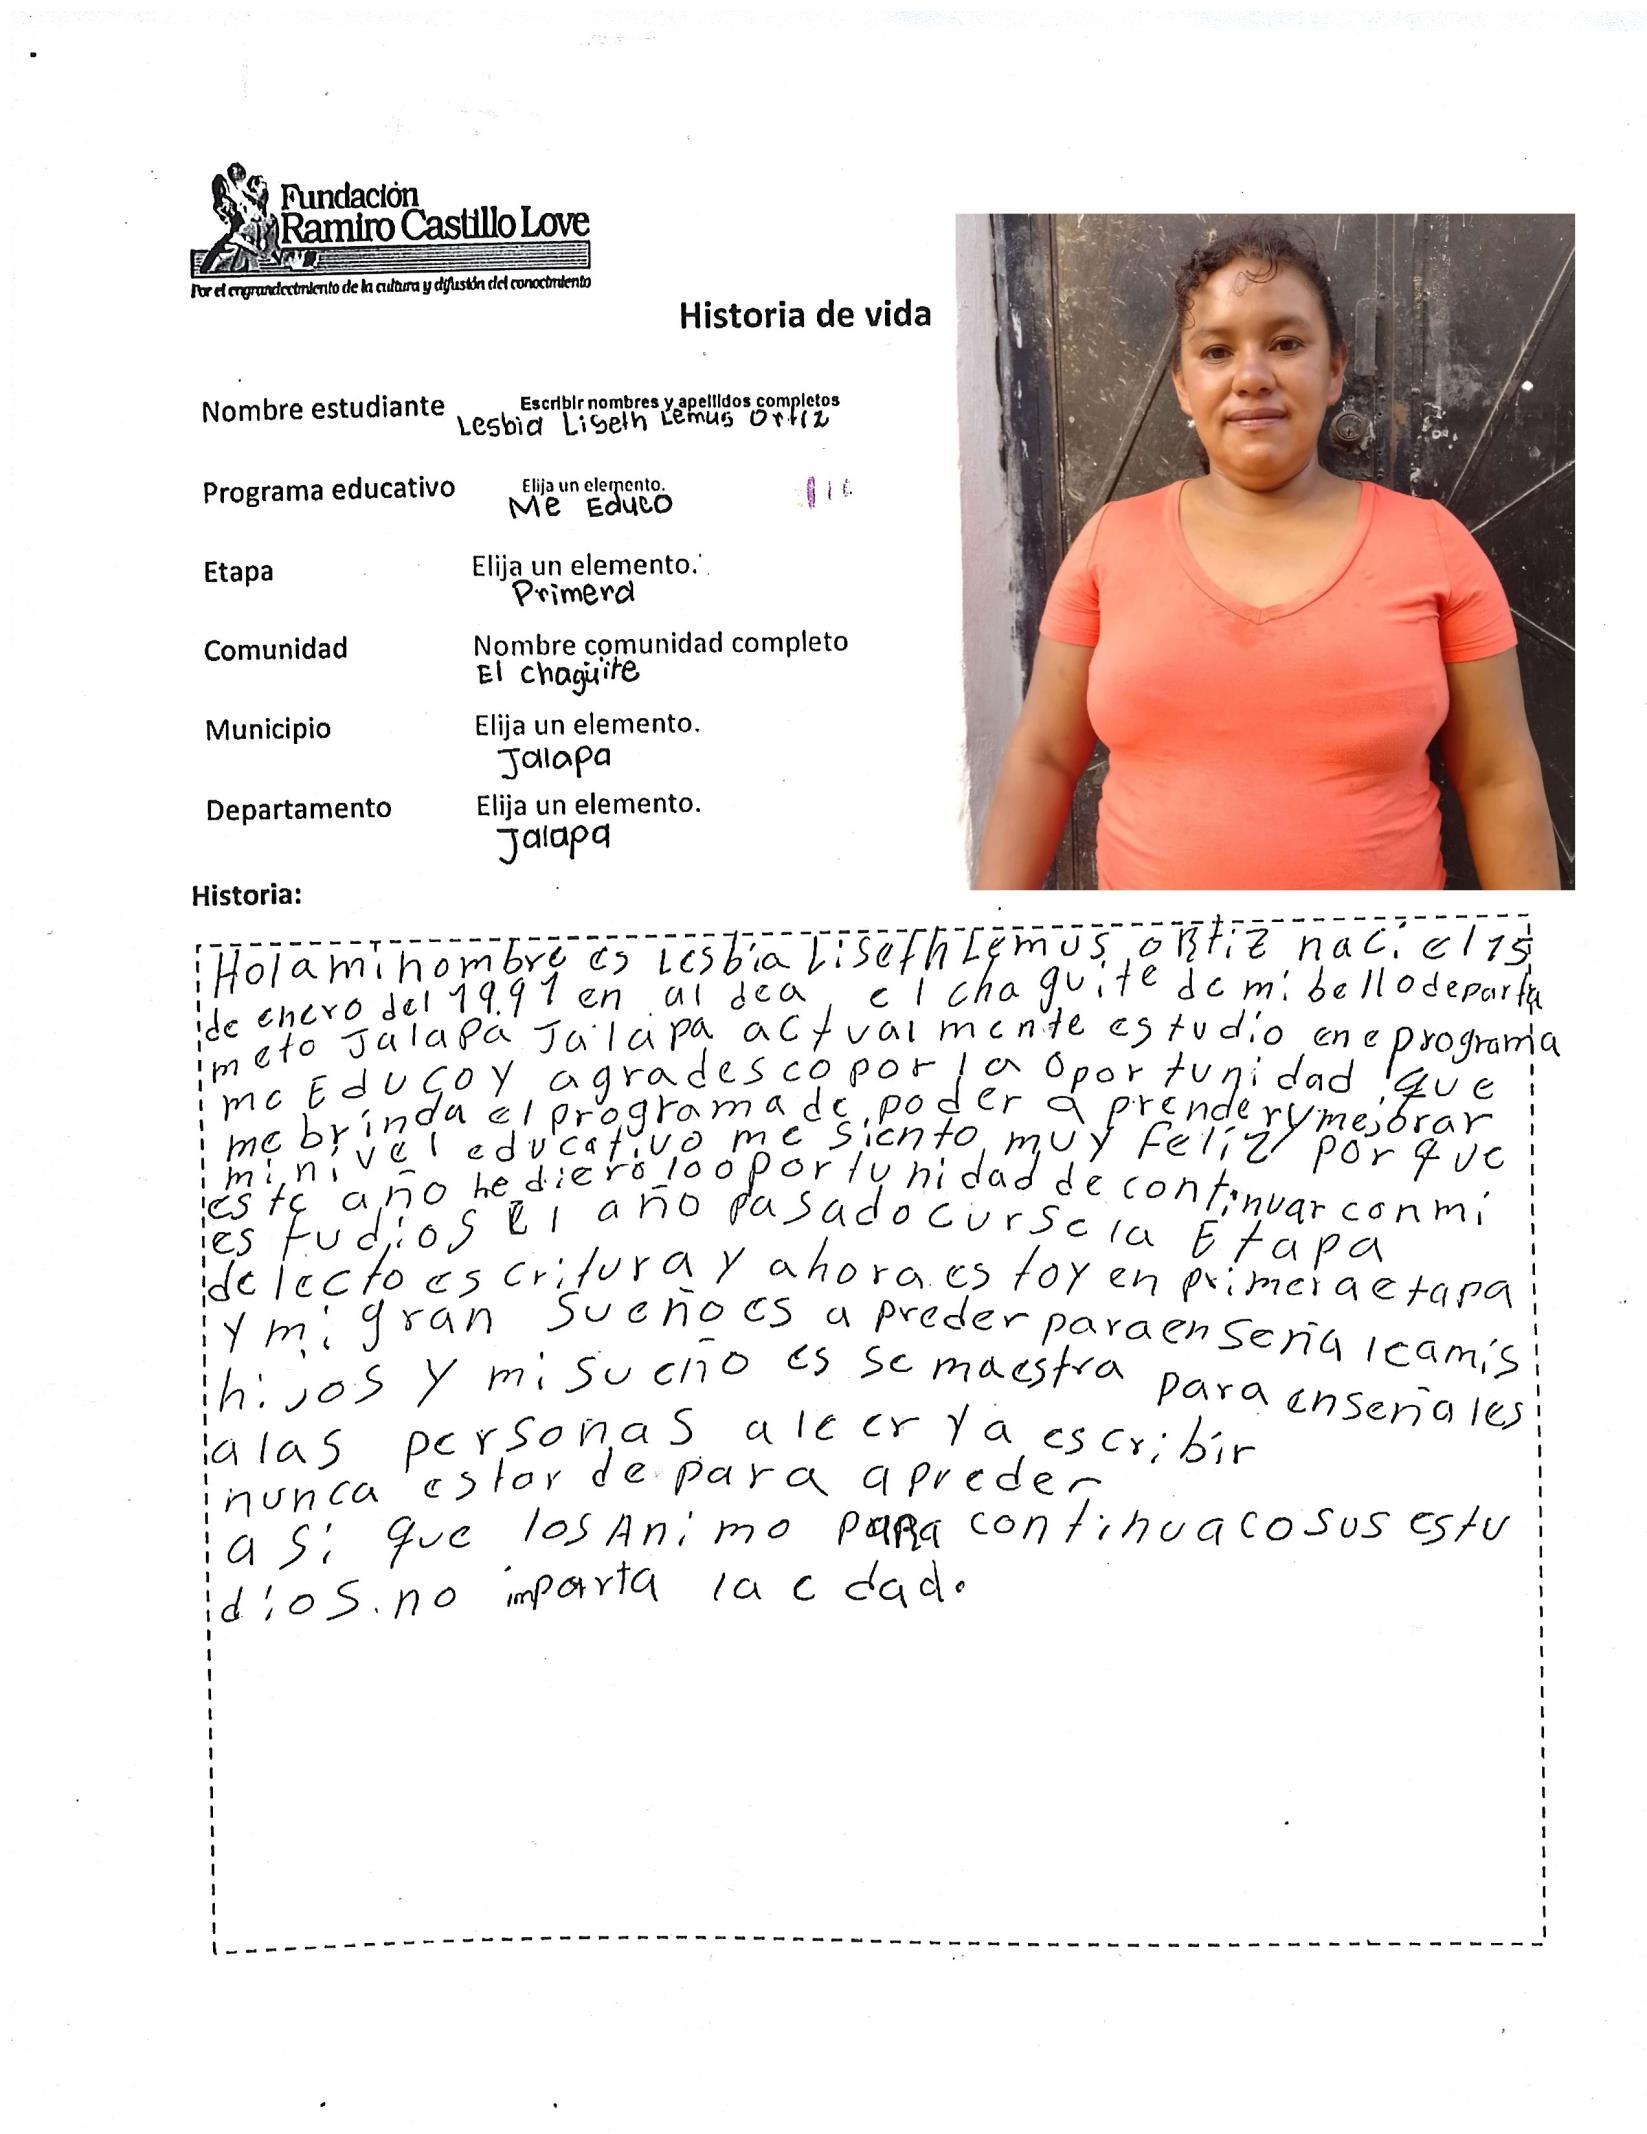 Fundación
Ramiro Castillo Love
Por el engrandecimiento de la cultura y difusión del conocimiento
Historia de vida
Nombre estudiante Escribir nombres y apellidos completos
Lesbia Liseth Lemus Ortiz
Programa educativo Elija un elemento.
Me Educo
Etapa Elija un elemento.
Primera
Comunidad Nombre comunidad completo
El chagüite
Municipio Elija un elemento.
Jalapa
Departamento Elija un elemento.
Jalapa
Historia:
Hola mi nombre es Lesbia Liseth Lemus oRtiz naci el 15
de enero del 1991 en al dea el chaguite de mi bello departa
meto Jalapa Jalapa actualmente estudio en e programa
me Educo y agradesco por la oportunidad que
me brinda el programa de poder aprender y mejorar
mi nivel educativo me siento muy feliz por que
este año he diero lo oportunidad de continuar con mi
estudios El año pasado curse la Etapa
de lecto escritura y ahora estoy en primera etapa
y mi gran sueño es a preder para enseña le a mis
hijos y mi sueño es se maestra para enseñales
a las personas a leer y a escribir
nunca es tar de para apreder
a si que los Animo paRa continua co sus estu
dios. no imparta la edad.